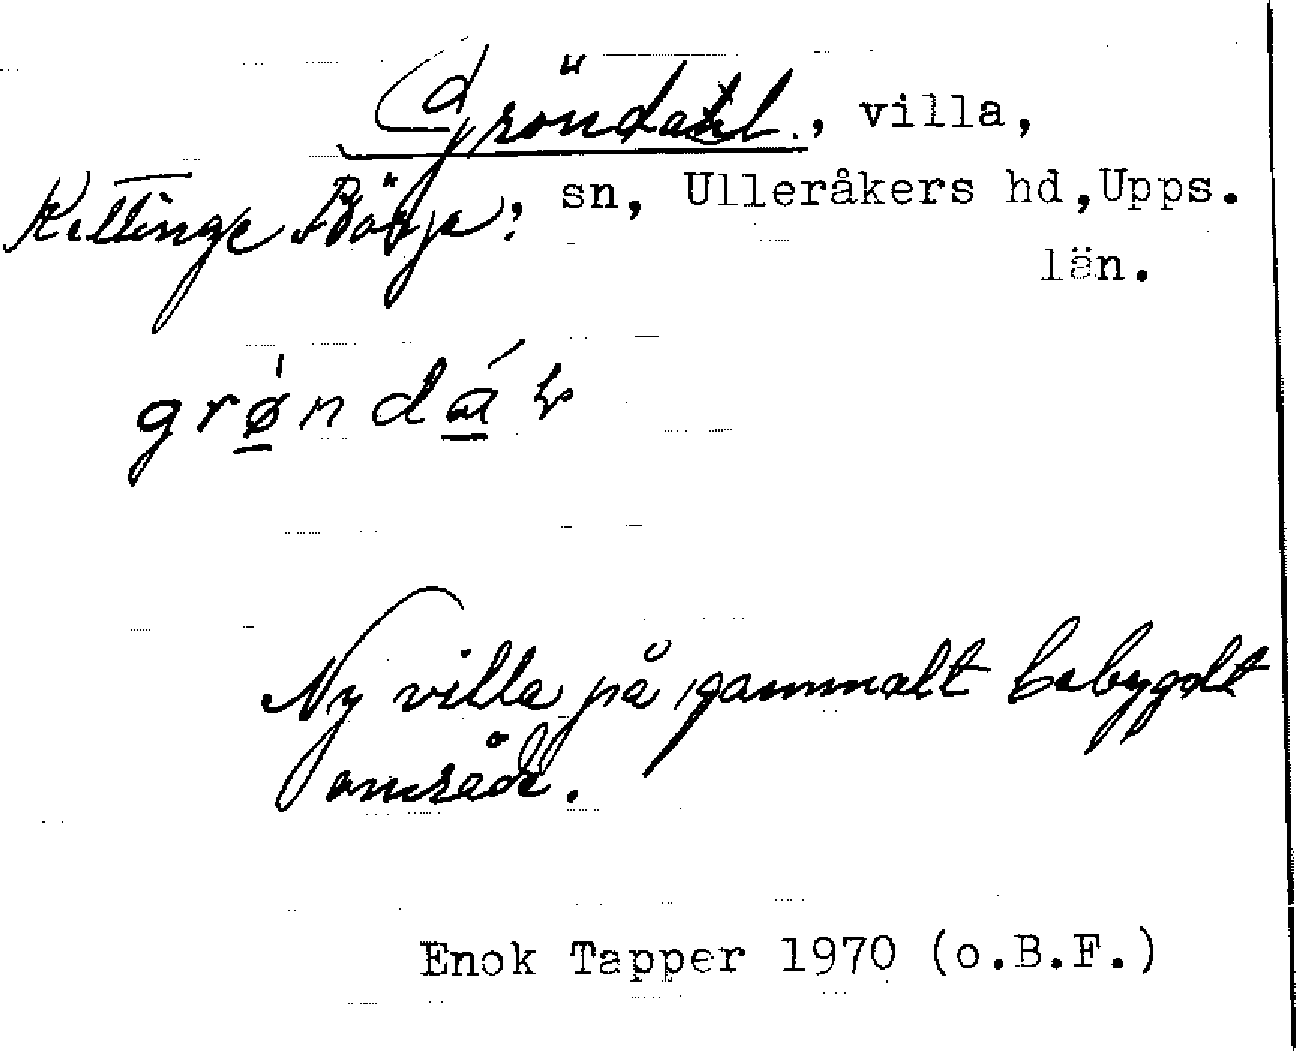 Gröndahl., villa,
Kättinge Börje, sn, Ulleråkers hd, Upps.
län.
grø̀ndá
Ny villa på gammalt bebygdt
område.
Enok Tapper 1970 (o.B.F.)